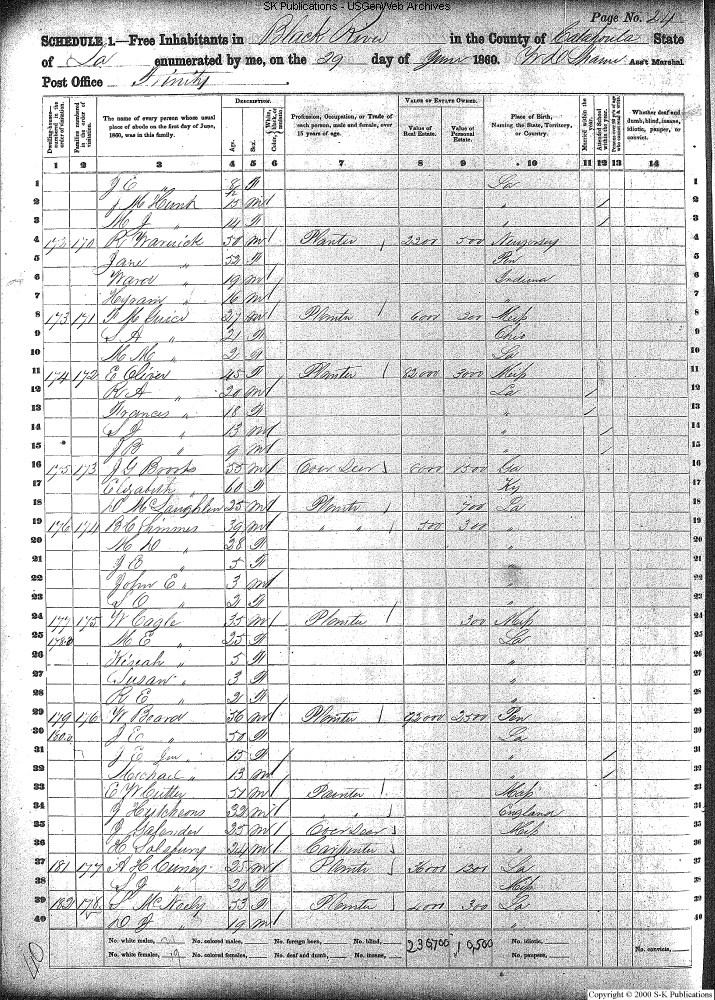 SK Publications - USGenWeb Archives
Page No. 24
SCHEDULE 1.—Free Inhabitants in Black River in the County of Catahoula State
of La enumerated by me, on the 29 day of June 1860. Ass't Marshal.
Post Office Trinity
Dwelling-houses— numbered in the order of visitation.
Families numbered in the order of visitation.
The name of every person whose usual place of abode on the first day of June, 1860, was in this family.
DESCRIPTION.
Age.
Sex.
Color, White, black, or mulatto.
Profession, Occupation, or Trade of each person, male and female, over 15 years of age.
VALUE OF ESTATE OWNED.
Value of Real Estate.
Value of Personal Estate.
Place of Birth, Naming the State, Territory, or Country.
Married within the year.
Attended School within the year.
Persons over 20 y'rs of age who cannot read & write.
Whether deaf and dumb, blind, insane, idiotic, pauper, or convict.
1 2 3 4 5 6 7 8 9 10 11 12 13 14
1 J E " F La 1
2 J M Hunt 15 m " / 2
3 M J " 14 F " / 3
4 172 170 R Warnick 50 m Planter 2200 500 New Jersey 4
5 Jane " 52 F Pen 5
6 Ward " 19 m Indiana 6
7 Hyram " 16 m " 7
8 173 171 27 m Planter 600 200 Miss 8
9 S A " 21 F Ohio 9
10 M M " 2 F La 10
11 174 172 E Oliver 45 F Planter 82000 3000 Miss 11
12 R A " 20 m La / 12
13 Frances " 18 F " / 13
14 S J " 13 m " / 14
15 J B " 9 m " / 15
16 175 173 J G Brooks 55 m Over Seer 8000 1500 Ga 16
17 Elizabeth " 60 F Ky 17
18 D McLaughlin 25 m Planter 700 La 18
19 176 174 B C Simmes 39 m " " 500 300 " 19
20 M D " 28 F " 20
21 J B " 5 F " 21
22 John E " 3 m " 22
23 S O " 2 F " 23
24 177 175 W Cagle 35 m Planter 300 Miss 24
25 178 M E " 25 F La 25
26 Kisiah " 5 F " 26
27 Susan " 3 F " 27
28 R E " 2 F " 28
29 179 176 W Beard 56 m Planter 92000 2500 Pen 29
30 180 J E " 50 F La 30
31 J E Jun " 15 F " / 31
32 Michael " 13 m " / 32
33 E W Cutter 51 m Painter 33
34 J Hutcheons 32 m " England 34
35 J Galender 25 m Over Seer Miss 35
36 H Salsburg 24 m Carpenter " 36
37 181 177 A H Curry 25 m Planter 36000 1200 La 37
38 S J " 20 F Miss 38
39 182 178 S McNeely 53 F Planter 4000 300 La 39
40 D J " 19 m " 40
No. white males, No. colored males, No. foreign born, No. blind, 230700 10,500 No. idiotic,
No. white females, 19 No. colored females, No. deaf and dumb, No. insane, No. paupers, No. convicts,
Copyright © 2000 S-K Publications